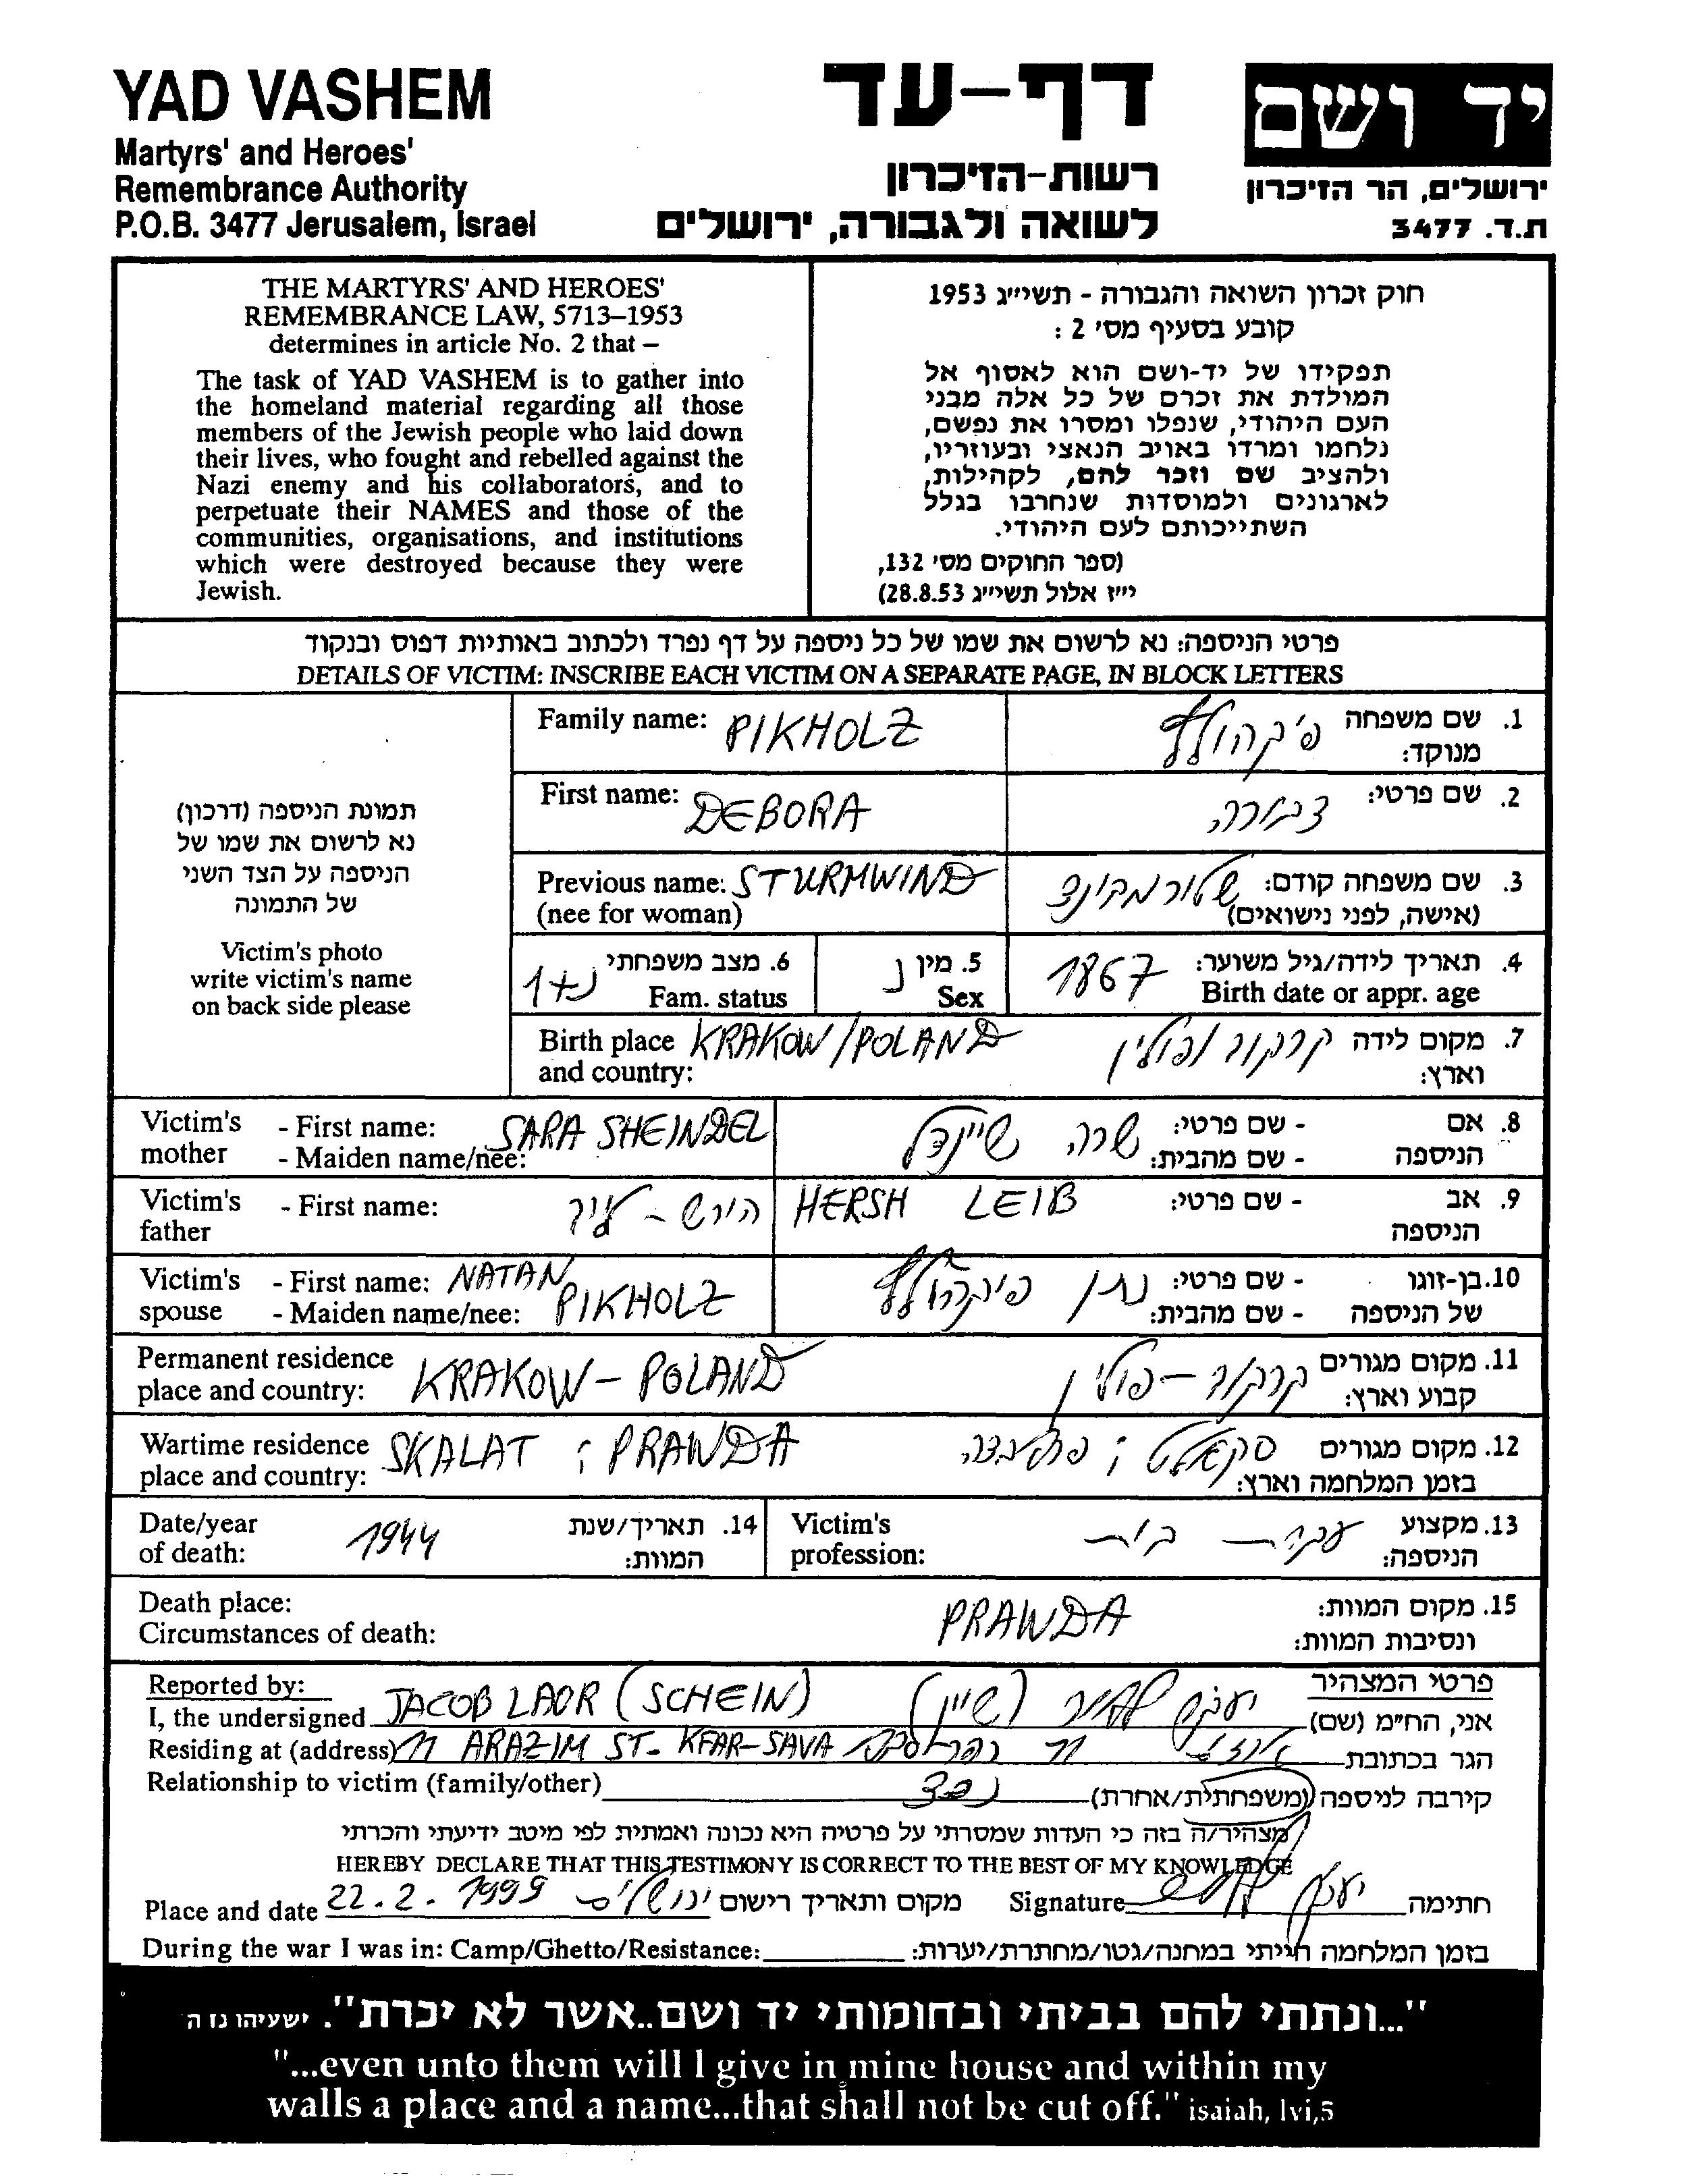 YAD VASHEM
Martyrs' and Heroes'
Remembrance Authority
P.O.B. 3477 Jerusalem, Israel
דף-עד
רשות-הזיכרון
לשואה ולגבורה, ירושלים
יד ושם
ירושלים, הר הזיכרון
ת.ד. 3477
THE MARTYRS' AND HEROES'
REMEMBRANCE LAW, 5713–1953
determines in article No. 2 that –
The task of YAD VASHEM is to gather into
the homeland material regarding all those
members of the Jewish people who laid down
their lives, who fought and rebelled against the
Nazi enemy and his collaborators, and to
perpetuate their NAMES and those of the
communities, organisations, and institutions
which were destroyed because they were
Jewish.
חוק זכרון השואה והגבורה - תשי״ג 1953
קובע בסעיף מס׳ 2 :
תפקידו של יד-ושם הוא לאסוף אל
המולדת את זכרם של כל אלה מבני
העם היהודי, שנפלו ומסרו את נפשם,
נלחמו ומרדו באויב הנאצי ובעוזריו,
ולהציב שם וזכר להם, לקהילות,
לארגונים ולמוסדות שנחרבו בגלל
השתייכותם לעם היהודי.
(ספר החוקים מס׳ 132,
י״ז אלול תשי״ג 28.8.53)
פרטי הניספה: נא לרשום את שמו של כל ניספה על דף נפרד ולכתוב באותיות דפוס ובנקוד
DETAILS OF VICTIM: INSCRIBE EACH VICTIM ON A SEPARATE PAGE, IN BLOCK LETTERS
תמונת הניספה (דרכון)
נא לרשום את שמו של
הניספה על הצד השני
של התמונה
Victim's photo
write victim's name
on back side please
Family name: PIKHOLZ
1. שם משפחה פיקהולץ
מנוקד:
First name: DEBORA
2. שם פרטי: דבורה
Previous name: STURMWIND
(nee for woman)
3. שם משפחה קודם: שטורמבינד
(אישה, לפני נישואים)
6. מצב משפחתי נ+1
Fam. status
5. מין נ
Sex
4. תאריך לידה/גיל משוער: 1867
Birth date or appr. age
Birth place KRAKOW/POLAND
and country:
7. מקום לידה קרקוב / פולין
וארץ:
Victim's - First name: SARA SHEINDEL
mother - Maiden name/nee:
8. אם - שם פרטי: שרה שיינדל
הניספה - שם מהבית:
Victim's - First name: הירש - לייב
father
9. אב - שם פרטי: HERSH LEIB
הניספה
Victim's - First name: NATAN
spouse - Maiden name/nee: PIKHOLZ
10. בן-זוגו - שם פרטי: נתן פיקהולץ
של הניספה - שם מהבית:
Permanent residence KRAKOW - POLAND
place and country:
11. מקום מגורים קרקוב - פולין
קבוע וארץ:
Wartime residence SKALAT ; PRAWDA
place and country:
12. מקום מגורים סקאלט ; פראבדה
בזמן המלחמה וארץ:
Date/year 1944
of death:
14. תאריך/שנת
המוות:
Victim's
profession:
13. מקצוע עקרת בית
הניספה:
Death place:
Circumstances of death:
PRAWDA
15. מקום המוות:
ונסיבות המוות:
Reported by:
פרטי המצהיר
I, the undersigned JACOB LAOR (SCHEIN)
אני, הח״מ (שם) יעקב לאור (שיין)
Residing at (address) 11 ARAZIM ST- KFAR-SAVA
הגר בכתובת ארזים 11 כפר סבא
Relationship to victim (family/other)
קירבה לניספה (משפחתית/אחרת) נכד
מצהיר/ה בזה כי העדות שמסרתי על פרטיה היא נכונה ואמתית לפי מיטב ידיעתי והכרתי
HEREBY DECLARE THAT THIS TESTIMONY IS CORRECT TO THE BEST OF MY KNOWLEDGE
Place and date 22-2-1999 ירושלים מקום ותאריך רישום
Signature יעקב לאור חתימה
During the war I was in: Camp/Ghetto/Resistance:
בזמן המלחמה הייתי במחנה/גטו/מחתרת/יערות:
"...ונתתי להם בביתי ובחומותי יד ושם..אשר לא יכרת". ישעיהו נז ה
"...even unto them will I give in mine house and within my
walls a place and a name...that shall not be cut off." isaiah, lvi,5